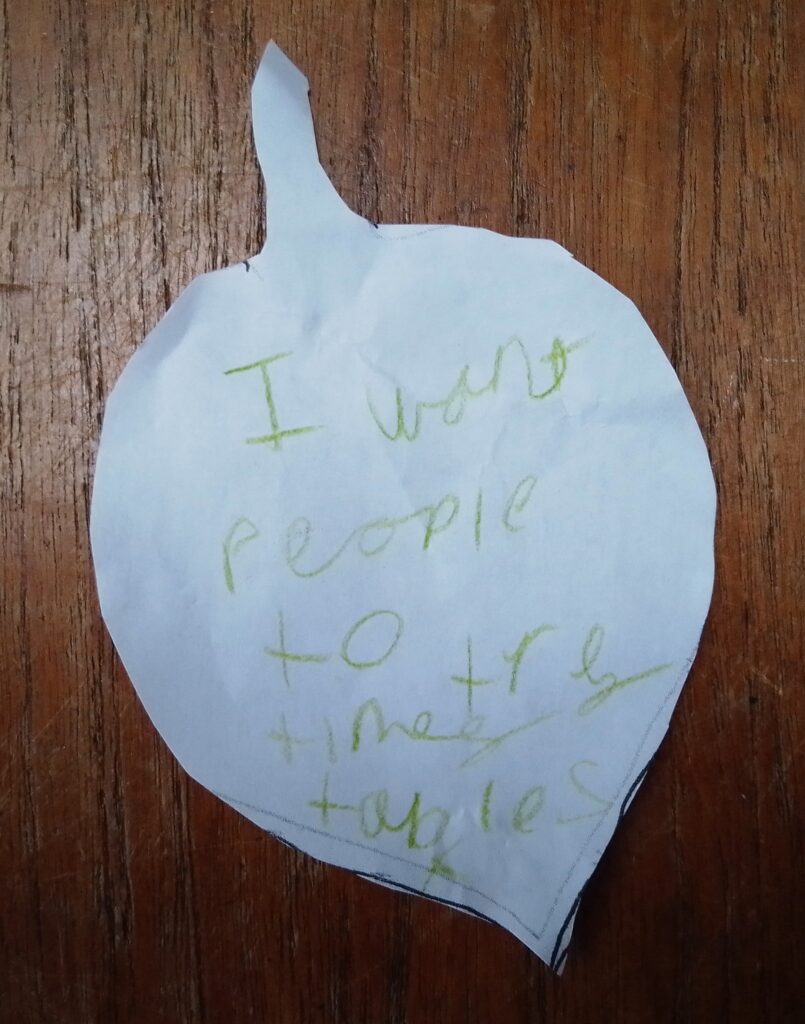 I want
people
to try
times
tables